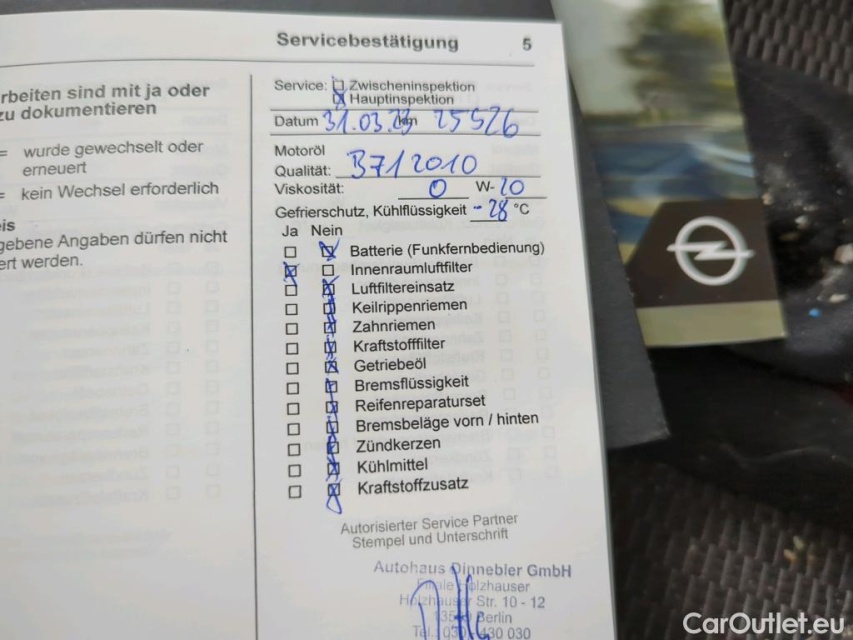 Servicebestätigung 5
rbeiten sind mit ja oder
zu dokumentieren
= wurde gewechselt oder
erneuert
= kein Wechsel erforderlich
eis
gebene Angaben dürfen nicht
ert werden.
Service: Zwischeninspektion
Hauptinspektion
Datum 31.03.23 km 25526
Motoröl
Qualität: B71 2010
Viskosität: 0 W-20
Gefrierschutz, Kühlflüssigkeit -28 °C
Ja Nein
Batterie (Funkfernbedienung)
Innenraumluftfilter
Luftfiltereinsatz
Keilrippenriemen
Zahnriemen
Kraftstofffilter
Getriebeöl
Bremsflüssigkeit
Reifenreparaturset
Bremsbeläge vorn / hinten
Zündkerzen
Kühlmittel
Kraftstoffzusatz
Autorisierter Service Partner
Stempel und Unterschrift
Autohaus Dinnebier GmbH
Filiale Holzhauser
Holzhauser Str. 10 - 12
Berlin
Tel.: 030 430 030
CarOutlet.eu